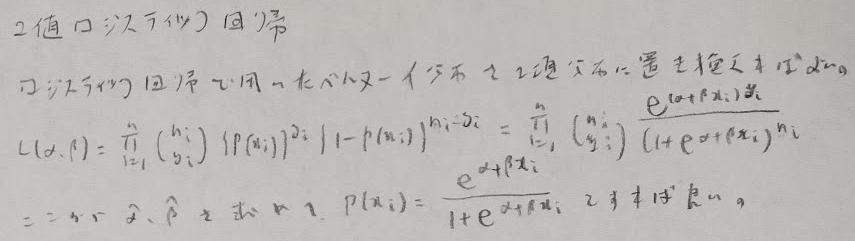 2値ロジスティック回帰
ロジスティック回帰で用いたベルヌーイ分布を2項分布に置き換えればよい。
L(α,β) = ∏_{i=1}^{n} (n_i y_i) {P(x_i)}^{y_i} {1-P(x_i)}^{n_i-y_i} = ∏_{i=1}^{n} (n_i y_i) e^{(α+βx_i)y_i} / (1+e^{α+βx_i})^{n_i}
ここから α̂、β̂ を求めて、P(x_i) = e^{α+βx_i} / 1+e^{α+βx_i} とすれば良い。